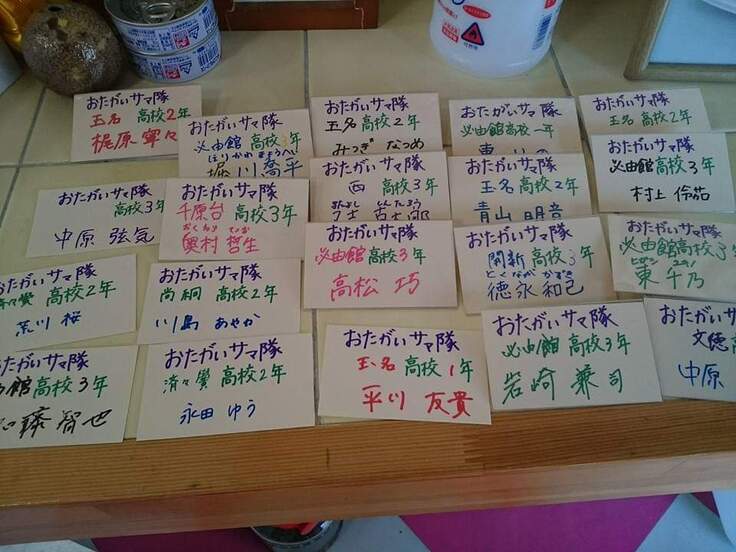 おたがいサマ隊
玉名 高校2年
梶原 寧々
おたがいサマ隊
必由館 高校3年
ほりかわ きょうへい
堀川 喬平
おたがいサマ隊
玉名 高校2年
みつぎ なつめ
おたがいサマ隊
必由館高校一年
東
おたがいサマ隊
玉名 高校2年
おたがいサマ隊
高校3年
中原 弦気
おたがいサマ隊
千原台 高校3年
おくむら てつお
奥村 哲生
おたがいサマ隊
西 高校3年
おたがいサマ隊
玉名 高校2年
青山 明音
おたがいサマ隊
必由館 高校3年
村上 伶茄
高校2年
荒川 桜
おたがいサマ隊
尚絅 高校2年
川島 あやか
おたがいサマ隊
必由館 高校3年
高松 巧
おたがいサマ隊
開新 高校3年
とくなが かずき
徳永 和己
おたがいサマ隊
必由館高校3年
東 千乃
おたがいサマ隊
館 高校3年
藤 智也
おたがいサマ隊
済々黌 高校2年
永田 ゆう
おたがいサマ隊
玉名 高校1年
平川 友貴
おたがいサマ隊
必由館 高校3年
岩崎 兼司
おたがいサ
文徳
中原